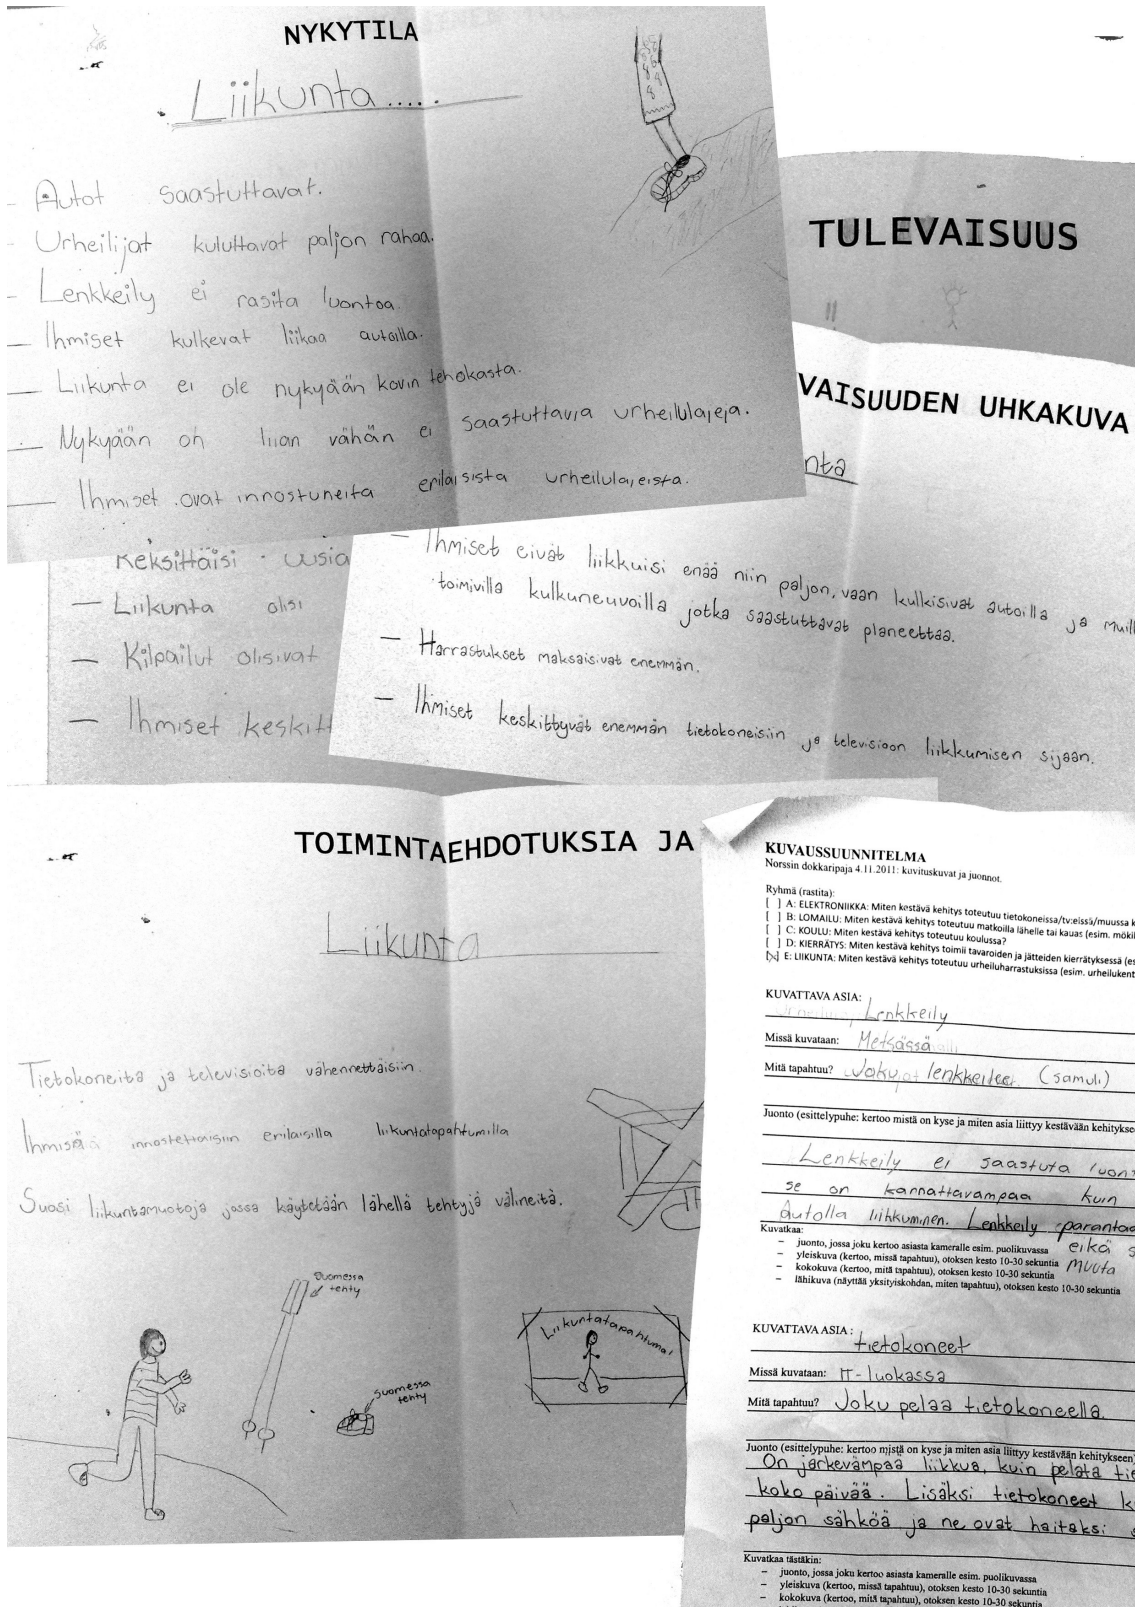 NYKYTILA
Liikunta.....
- Autot saastuttavat.
- Urheilijat kuluttavat paljon rahaa.
- Lenkkeily ei rasita luontoa.
- Ihmiset kulkevat liikaa autoilla.
- Liikunta ei ole nykyään kovin tehokasta.
- Nykyään on liian vähän ei saastuttavia urheilulajeja.
- Ihmiset ovat innostuneita erilaisista urheilulajeista.
TULEVAISUUS
!!
VAISUUDEN UHKAKUVA
nta
Keksittäisi uusia
- Liikunta olisi
- Kilpailut olisivat
- Ihmiset keskitt
- Ihmiset eivät liikkuisi enää niin paljon, vaan kulkisivat autoilla ja muill
toimivilla kulkuneuvoilla jotka saastuttavat planeettaa.
- Harrastukset maksaisivat enemmän.
- Ihmiset keskittyvät enemmän tietokoneisiin ja televisioon liikkumisen sijaan.
TOIMINTAEHDOTUKSIA JA
Liikunta
Tietokoneita ja televisioita vähennettäisiin.
Ihmisiä innostettaisiin erilaisilla liikuntatapahtumilla
Suosi liikuntamuotoja jossa käytetään lähellä tehtyjä välineitä.
Suomessa
tehty
Suomessa
tehty
Liikuntatapahtuma!
KUVAUSSUUNNITELMA
Norssin dokkaripaja 4.11.2011: kuvituskuvat ja juonnot.
Ryhmä (rastita):
[ ] A: ELEKTRONIIKKA: Miten kestävä kehitys toteutuu tietokoneissa/tv:eissä/muussa k
[ ] B: LOMAILU: Miten kestävä kehitys toteutuu matkoilla lähelle tai kauas (esim. mökil
[ ] C: KOULU: Miten kestävä kehitys toteutuu koulussa?
[ ] D: KIERRÄTYS: Miten kestävä kehitys toimii tavaroiden ja jätteiden kierrätyksessä (es
[x] E: LIIKUNTA: Miten kestävä kehitys toteutuu urheiluharrastuksissa (esim. urheilukent
KUVATTAVA ASIA: Lenkkeily
Missä kuvataan: Metsässä
Mitä tapahtuu? Joku lenkkeilee. (samuli)
Juonto (esittelypuhe: kertoo mistä on kyse ja miten asia liittyy kestävään kehityksee
Lenkkeily ei saastuta luon
se on kannattavampaa kuin
autolla liihkuminen. Lenkkeily parantaa
Kuvatkaa: eikä s
- juonto, jossa joku kertoo asiasta kameralle esim. puolikuvassa
- yleiskuva (kertoo, missä tapahtuu), otoksen kesto 10-30 sekuntia muuta
- kokokuva (kertoo, mitä tapahtuu), otoksen kesto 10-30 sekuntia
- lähikuva (näyttää yksityiskohdan, miten tapahtuu), otoksen kesto 10-30 sekuntia
KUVATTAVA ASIA: tietokoneet
Missä kuvataan: IT-luokassa
Mitä tapahtuu? Joku pelaa tietokoneella.
Juonto (esittelypuhe: kertoo mistä on kyse ja miten asia liittyy kestävään kehitykseen)
On järkevämpää liikkua, kuin pelata tie
koko päivää. Lisäksi tietokoneet k
paljon sähköä ja ne ovat haitaksi
Kuvatkaa tästäkin:
- juonto, jossa joku kertoo asiasta kameralle esim. puolikuvassa
- yleiskuva (kertoo, missä tapahtuu), otoksen kesto 10-30 sekuntia
- kokokuva (kertoo, mitä tapahtuu), otoksen kesto 10-30 sekuntia